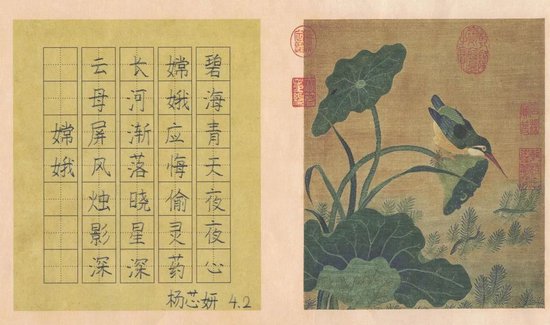 嫦娥
云母屏风烛影深
长河渐落晓星深
嫦娥应悔偷灵药
碧海青天夜夜心
杨芯妍 4.2